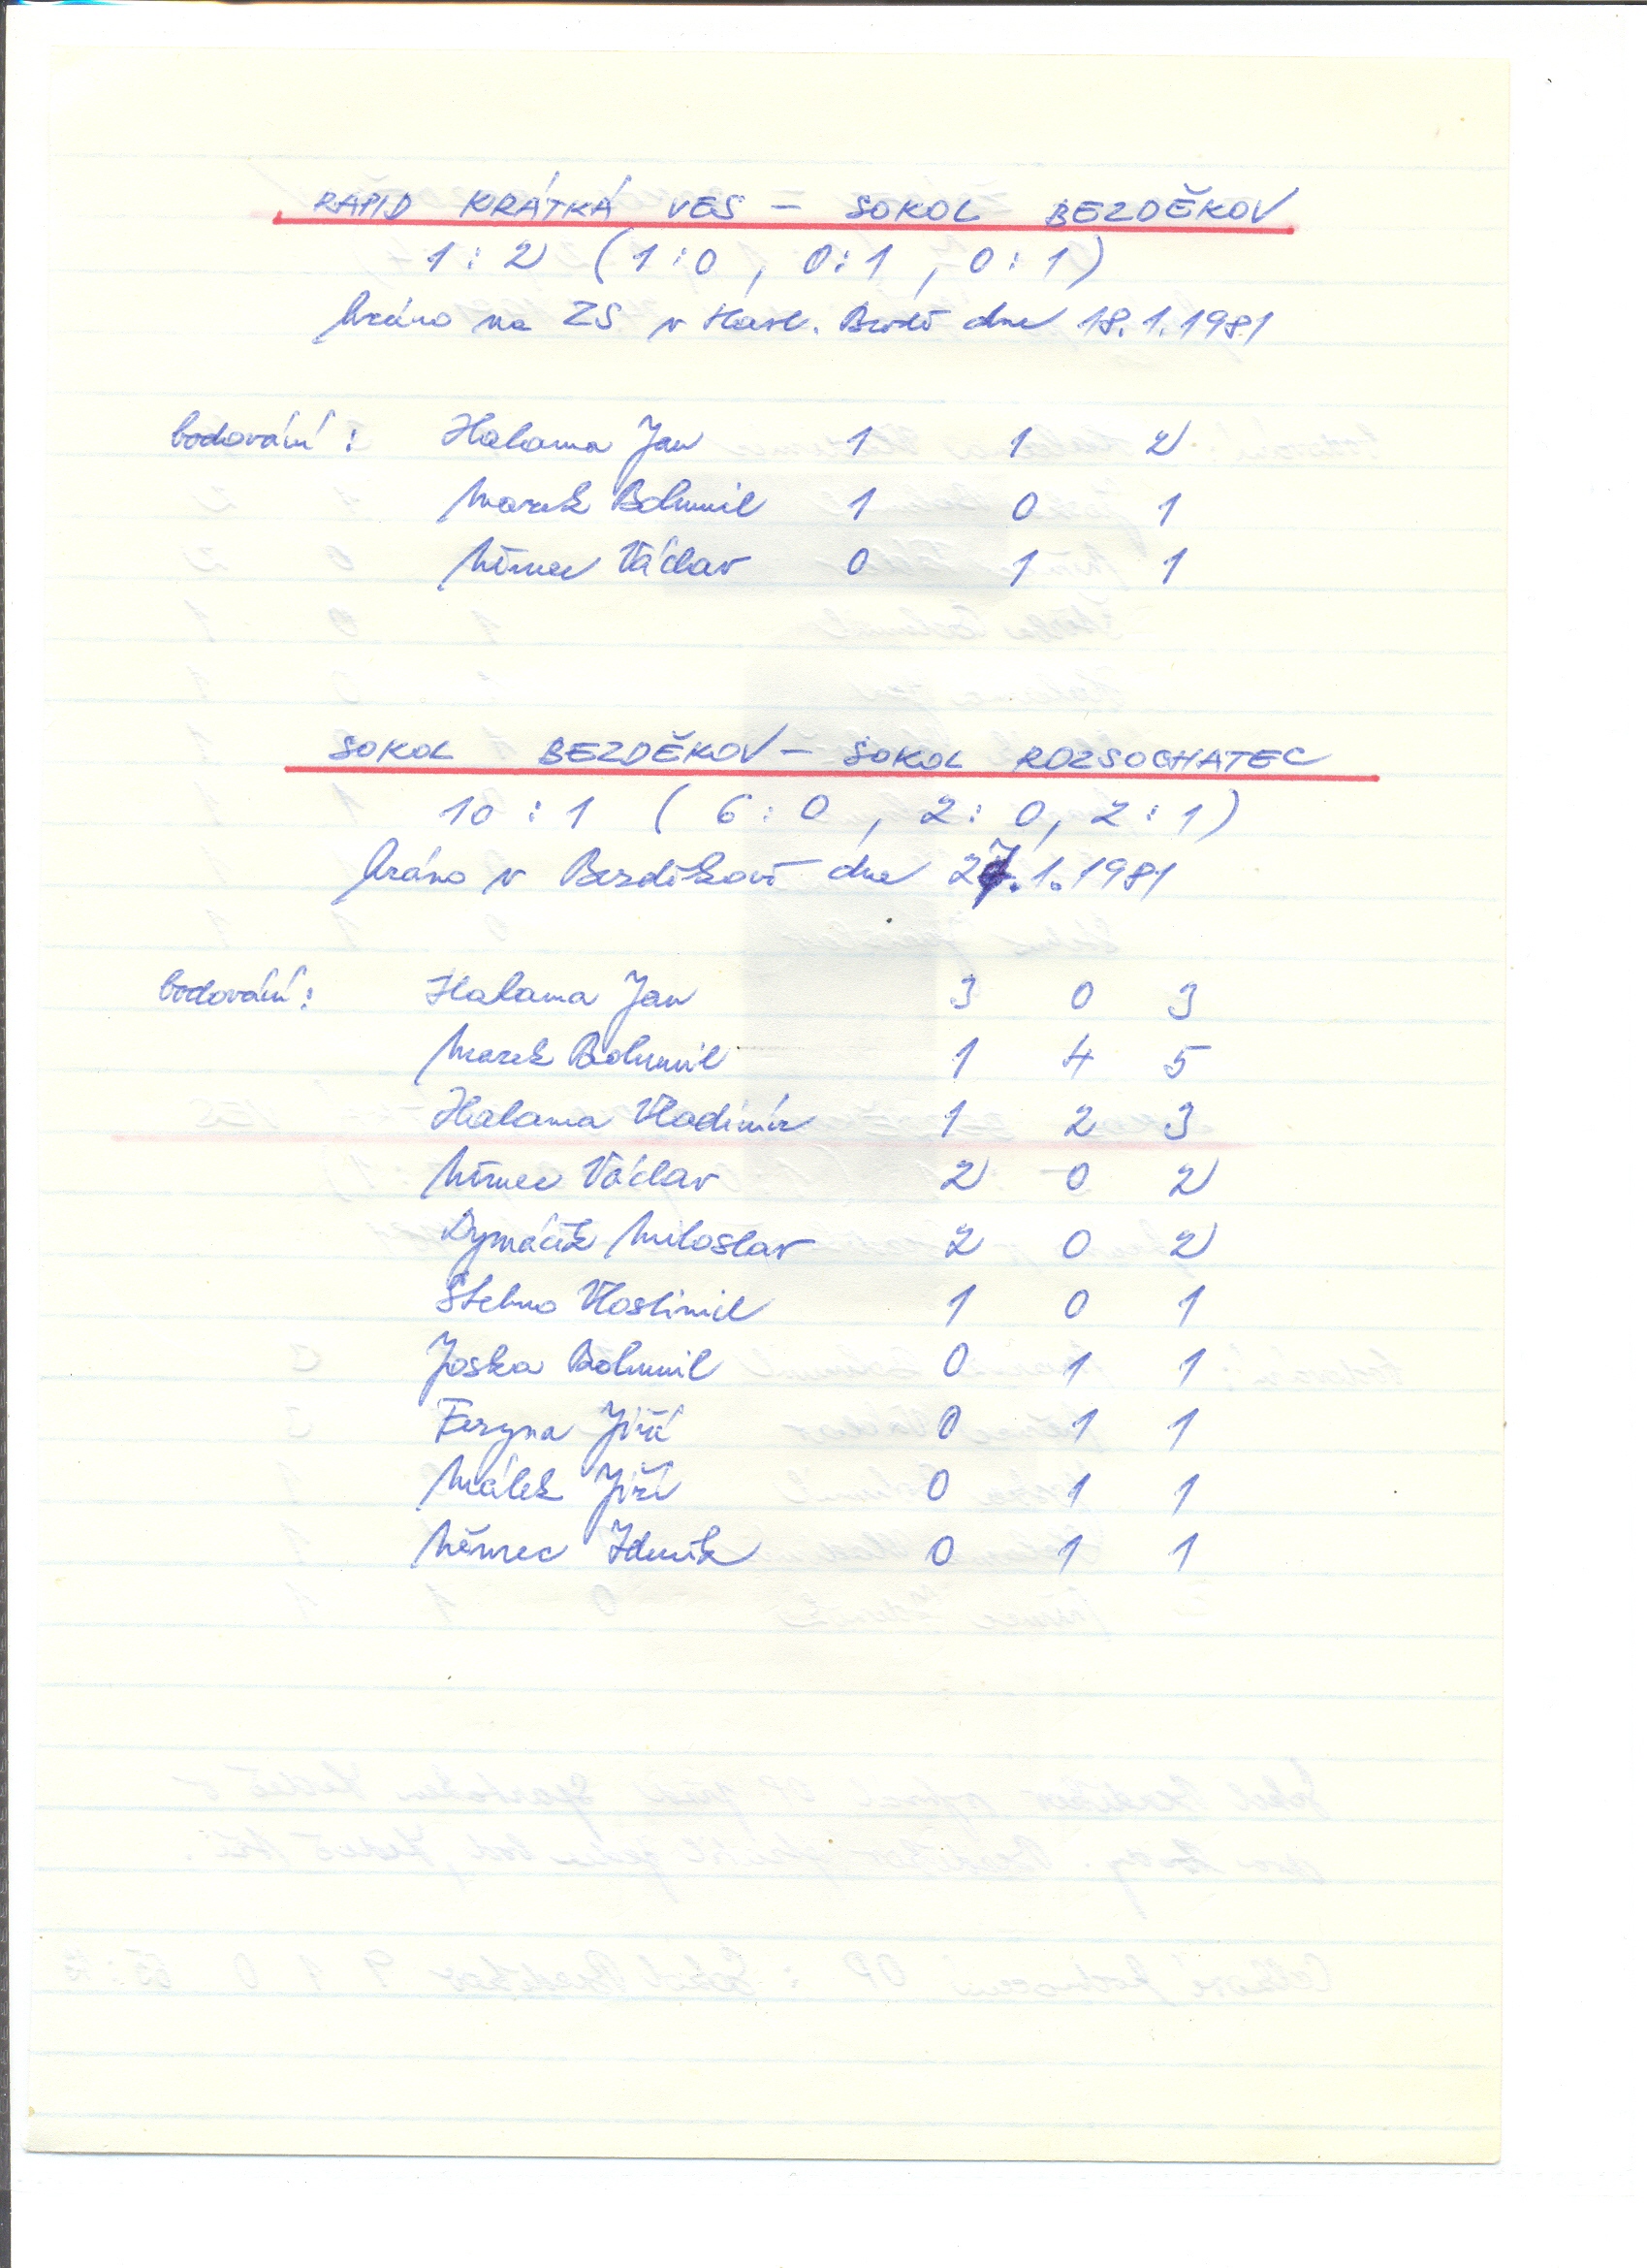 RAPID KRÁTKÁ VES - SOKOL BEZDĚKOV
1 : 2 (1:0, 0:1, 0:1)
hráno na ZS v Havl. Brodě dne 18.1.1981
bodování: Halama Jan 1 1 2
Marek Bohumil 1 0 1
Němec Václav 0 1 1
SOKOL BEZDĚKOV - SOKOL ROZSOCHATEC
10 : 1 (6:0, 2:0, 2:1)
hráno v Bezděkově dne 27.1.1981
bodování: Halama Jan 3 0 3
Marek Bohumil 1 4 5
Halama Vladimír 1 2 3
Němec Václav 2 0 2
Dymáček Miloslav 2 0 2
Stehno Vlastimil 1 0 1
Joska Bohumil 0 1 1
Feryna Jiří 0 1 1
Málek Jiří 0 1 1
Němec Zdeněk 0 1 1